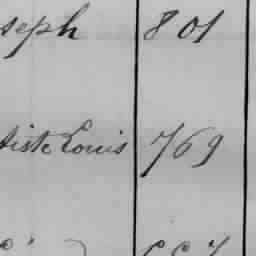 seph 801
tiste Louis 769